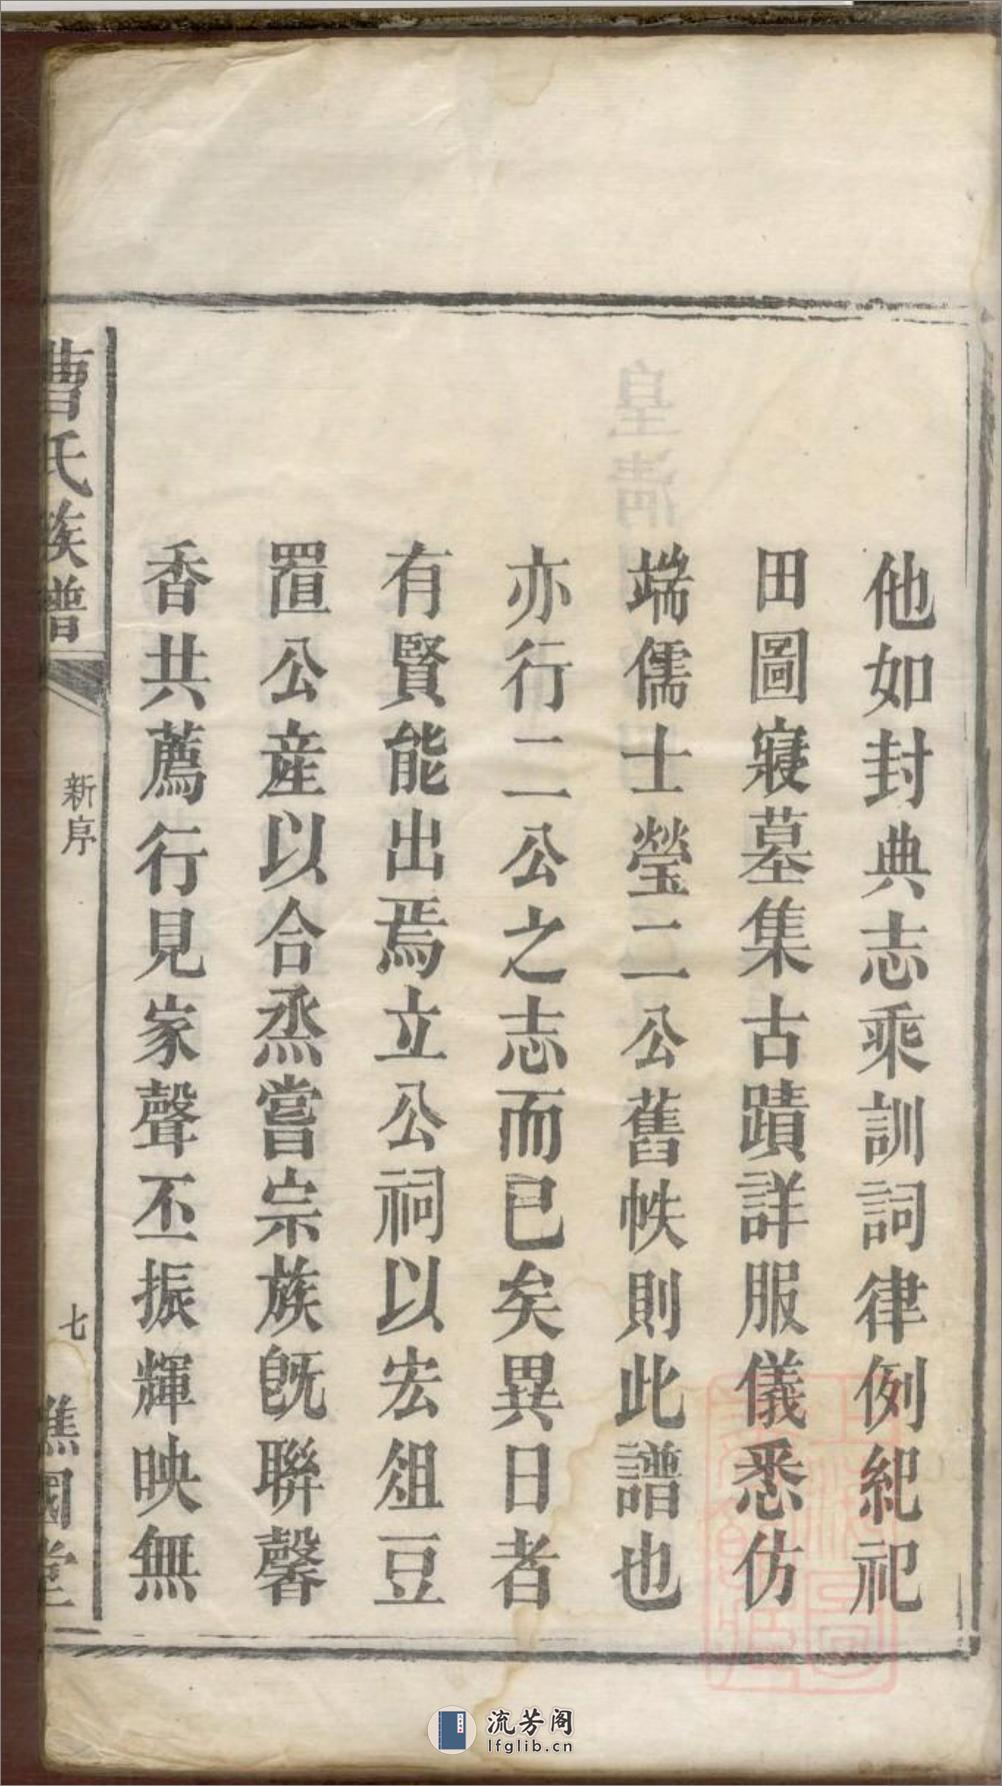 他如封典志乘訓詞律例紀祀
田圖寢墓集古蹟詳服儀悉仿
端儒士瑩二公舊帙則此譜也
亦行二公之志而已矣異日者
有賢能出焉立公祠以宏俎豆
置公産以合烝嘗宗族旣聯馨
香共薦行見家聲丕振輝映無
曹氏族譜
新序
七
譙國堂
皇清
流芳阁
lfglib.cn